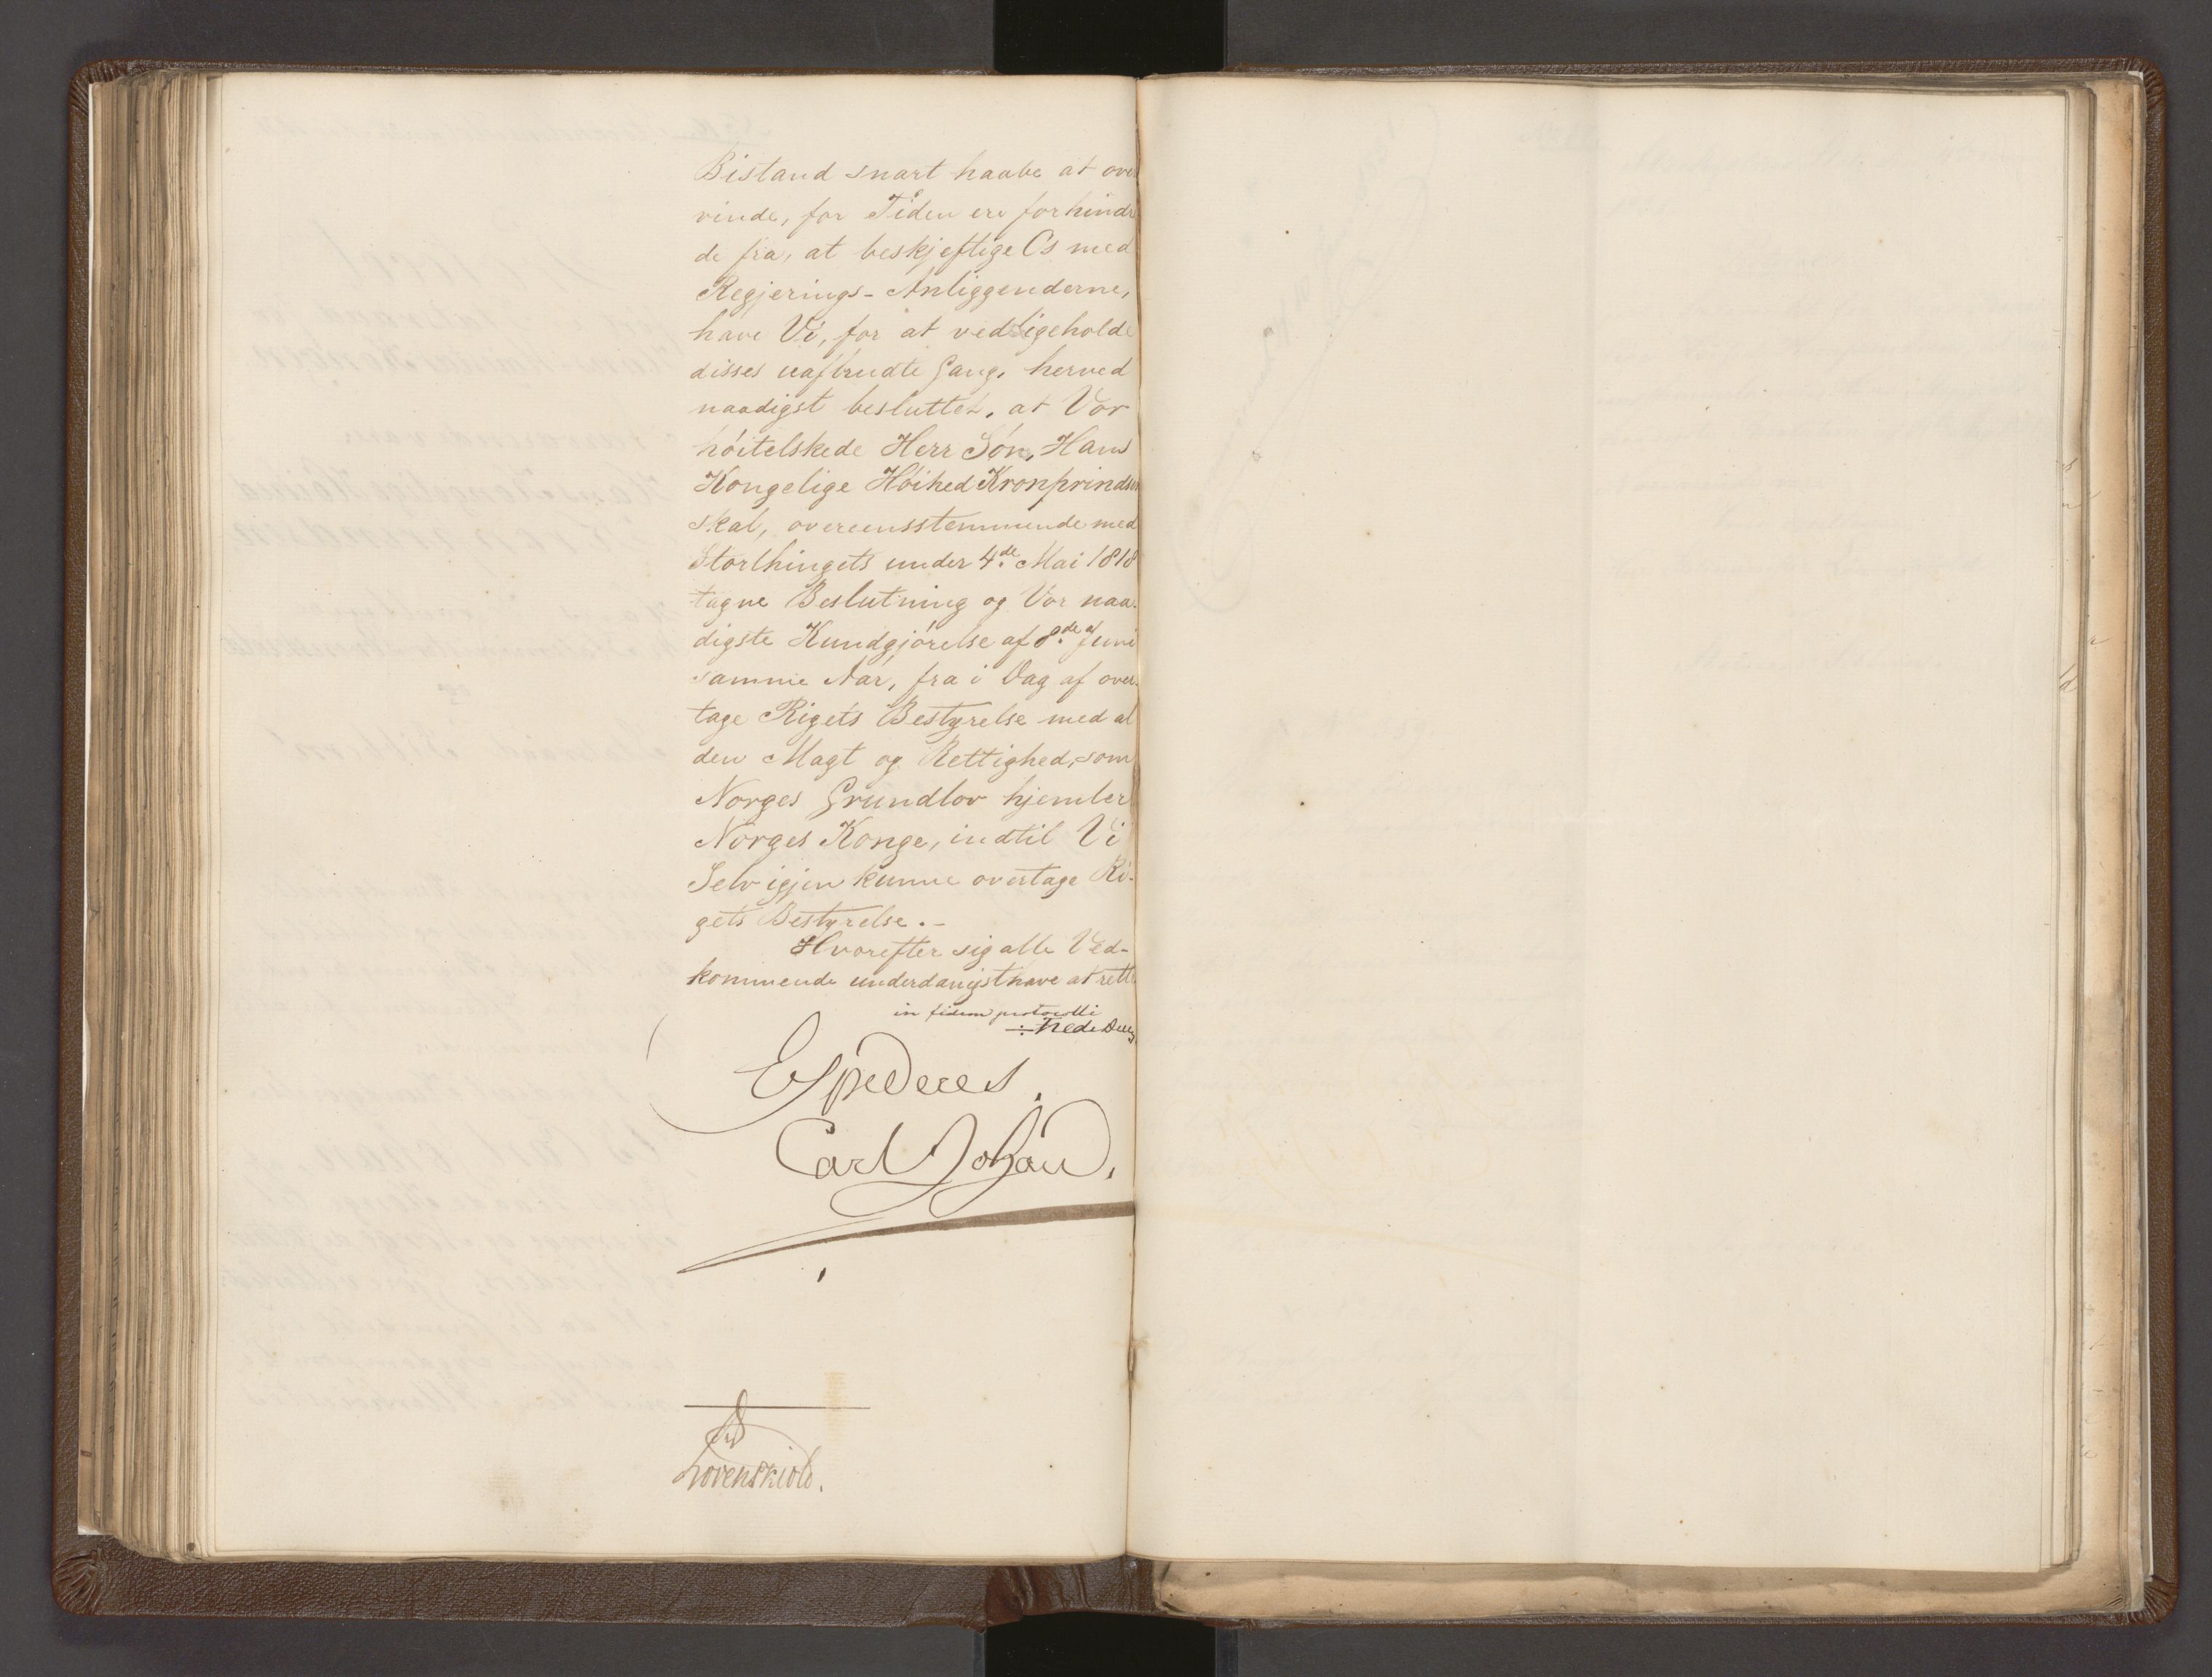 Bistand snart haabe at over
vinde, for Tiden ere forhindre
de fra, at beskjeftige Os med
Regjerings-Anliggenderne,
have Vi, for at vedligeholde
disses uafbrudte Gang, herved
naadigst besluttet, at Vor
höitelskede Herr Sön, Hans
Kongelige Höihed Kronprindsen
skal, overeensstemmende med
Storthingets under 4.de Mai 1818
tagne Beslutning og Vor naa-
digste Kundgjörelse af 8.de Juni
samme Aar, fra i Dag af over-
tage Rigets Bestyrelse med al
den Magt og Rettighed, som
Norges Grundlov hjemler
Norges Konge, indtil Vi
Selv igjen kunne overtage Ri-
gets Bestyrelse.-
Hvorefter sig alle Ved-
kommende underdanigst have at rette
in fidem protocolli
Expederes.
Carl Johan.
Lövenskiold.